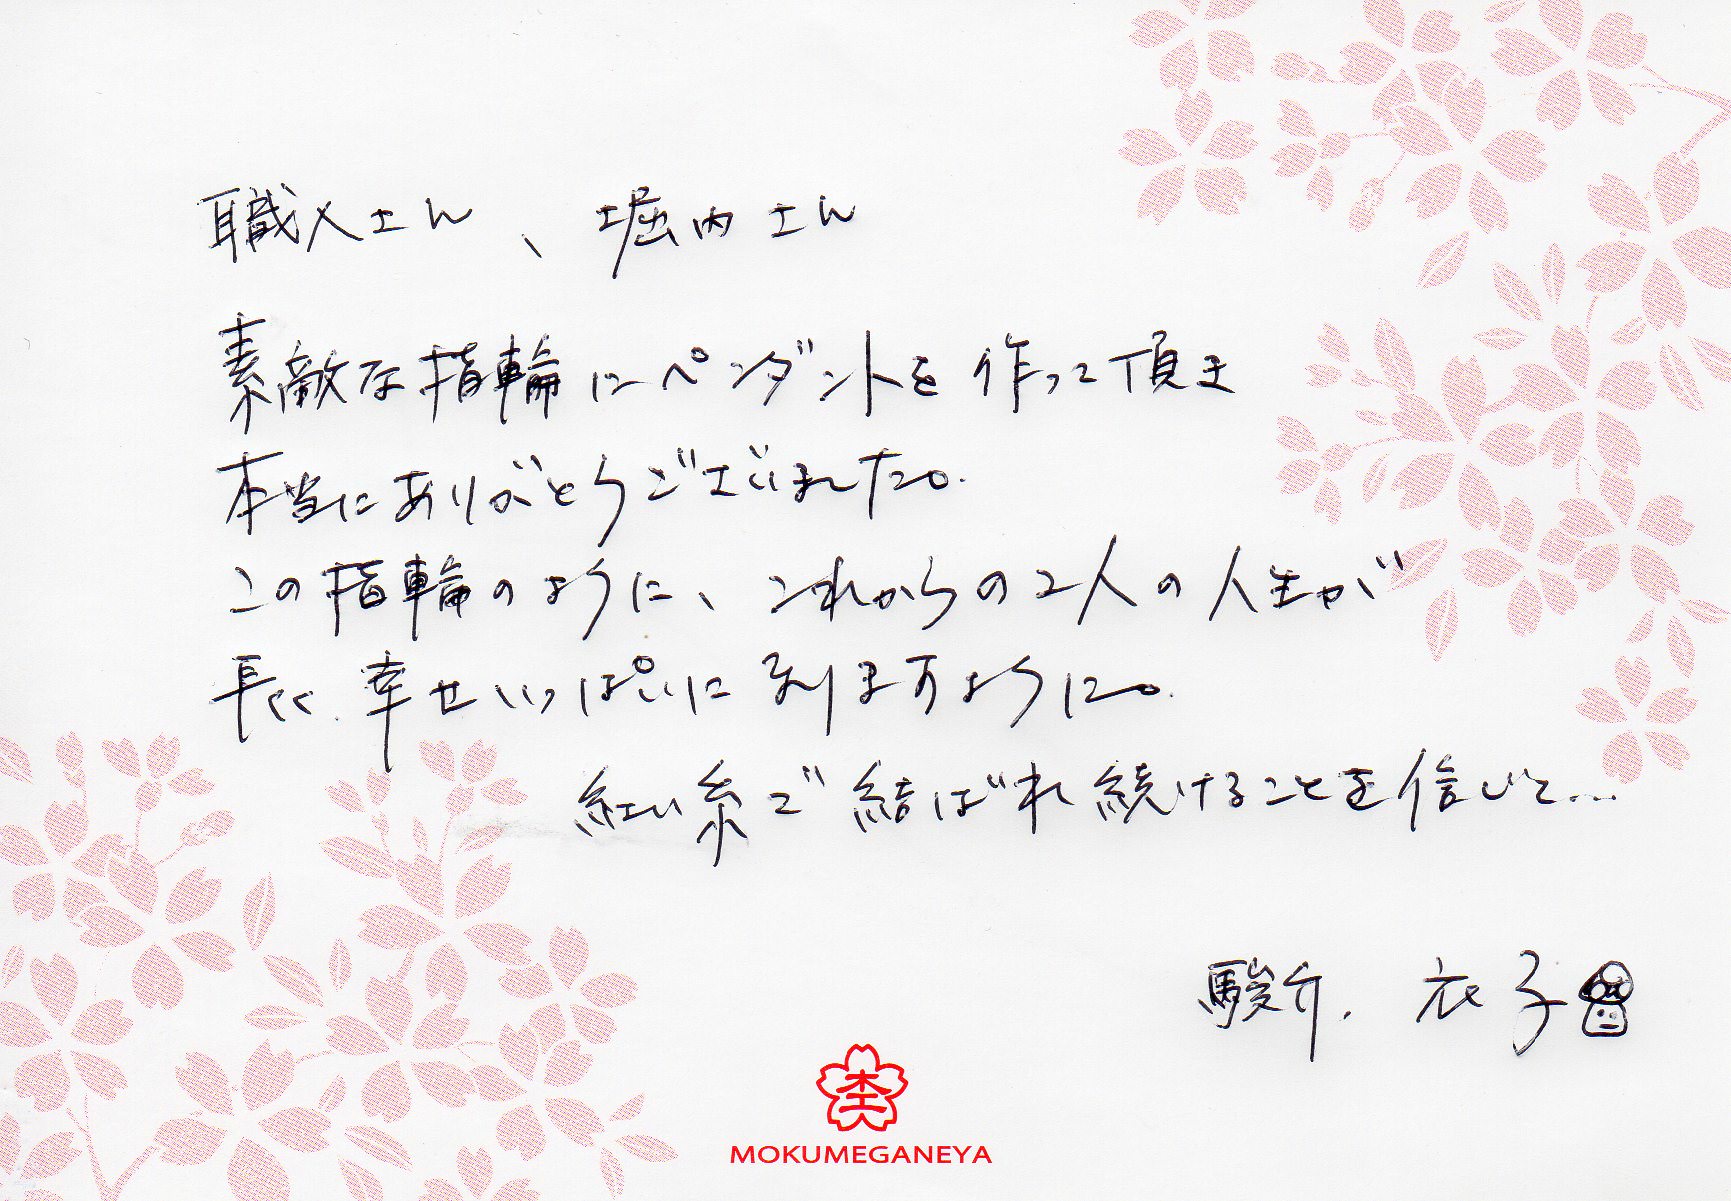 職人さん、堀内さん
素敵な指輪にペンダントを作って頂き
本当にありがとうございました。
この指輪のように、これからの2人の人生が
長く、幸せいっぱいに刻りますように。
紅い糸で結ばれ続けることを信じて…
駿介、衣子
杢
MOKUMEGANEYA